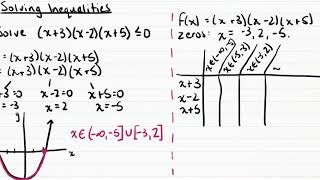 Solving Inequalities
Solve (x+3)(x-2)(x+5) ≤ 0
= (x+3)(x-2)(x+5)
= (x+3)(x-2)(x+5)
=0 x-2=0 x+5=0
= -3 x=2 x=-5
y
x
x∈(-∞,-5]∪[-3,2]
f(x) = (x+3)(x-2)(x+5)
zeros: x = -3, 2, -5.
x∈(-∞,-5) x∈(-5,-3) x∈(-3,2)
x+3
x-2
x+5